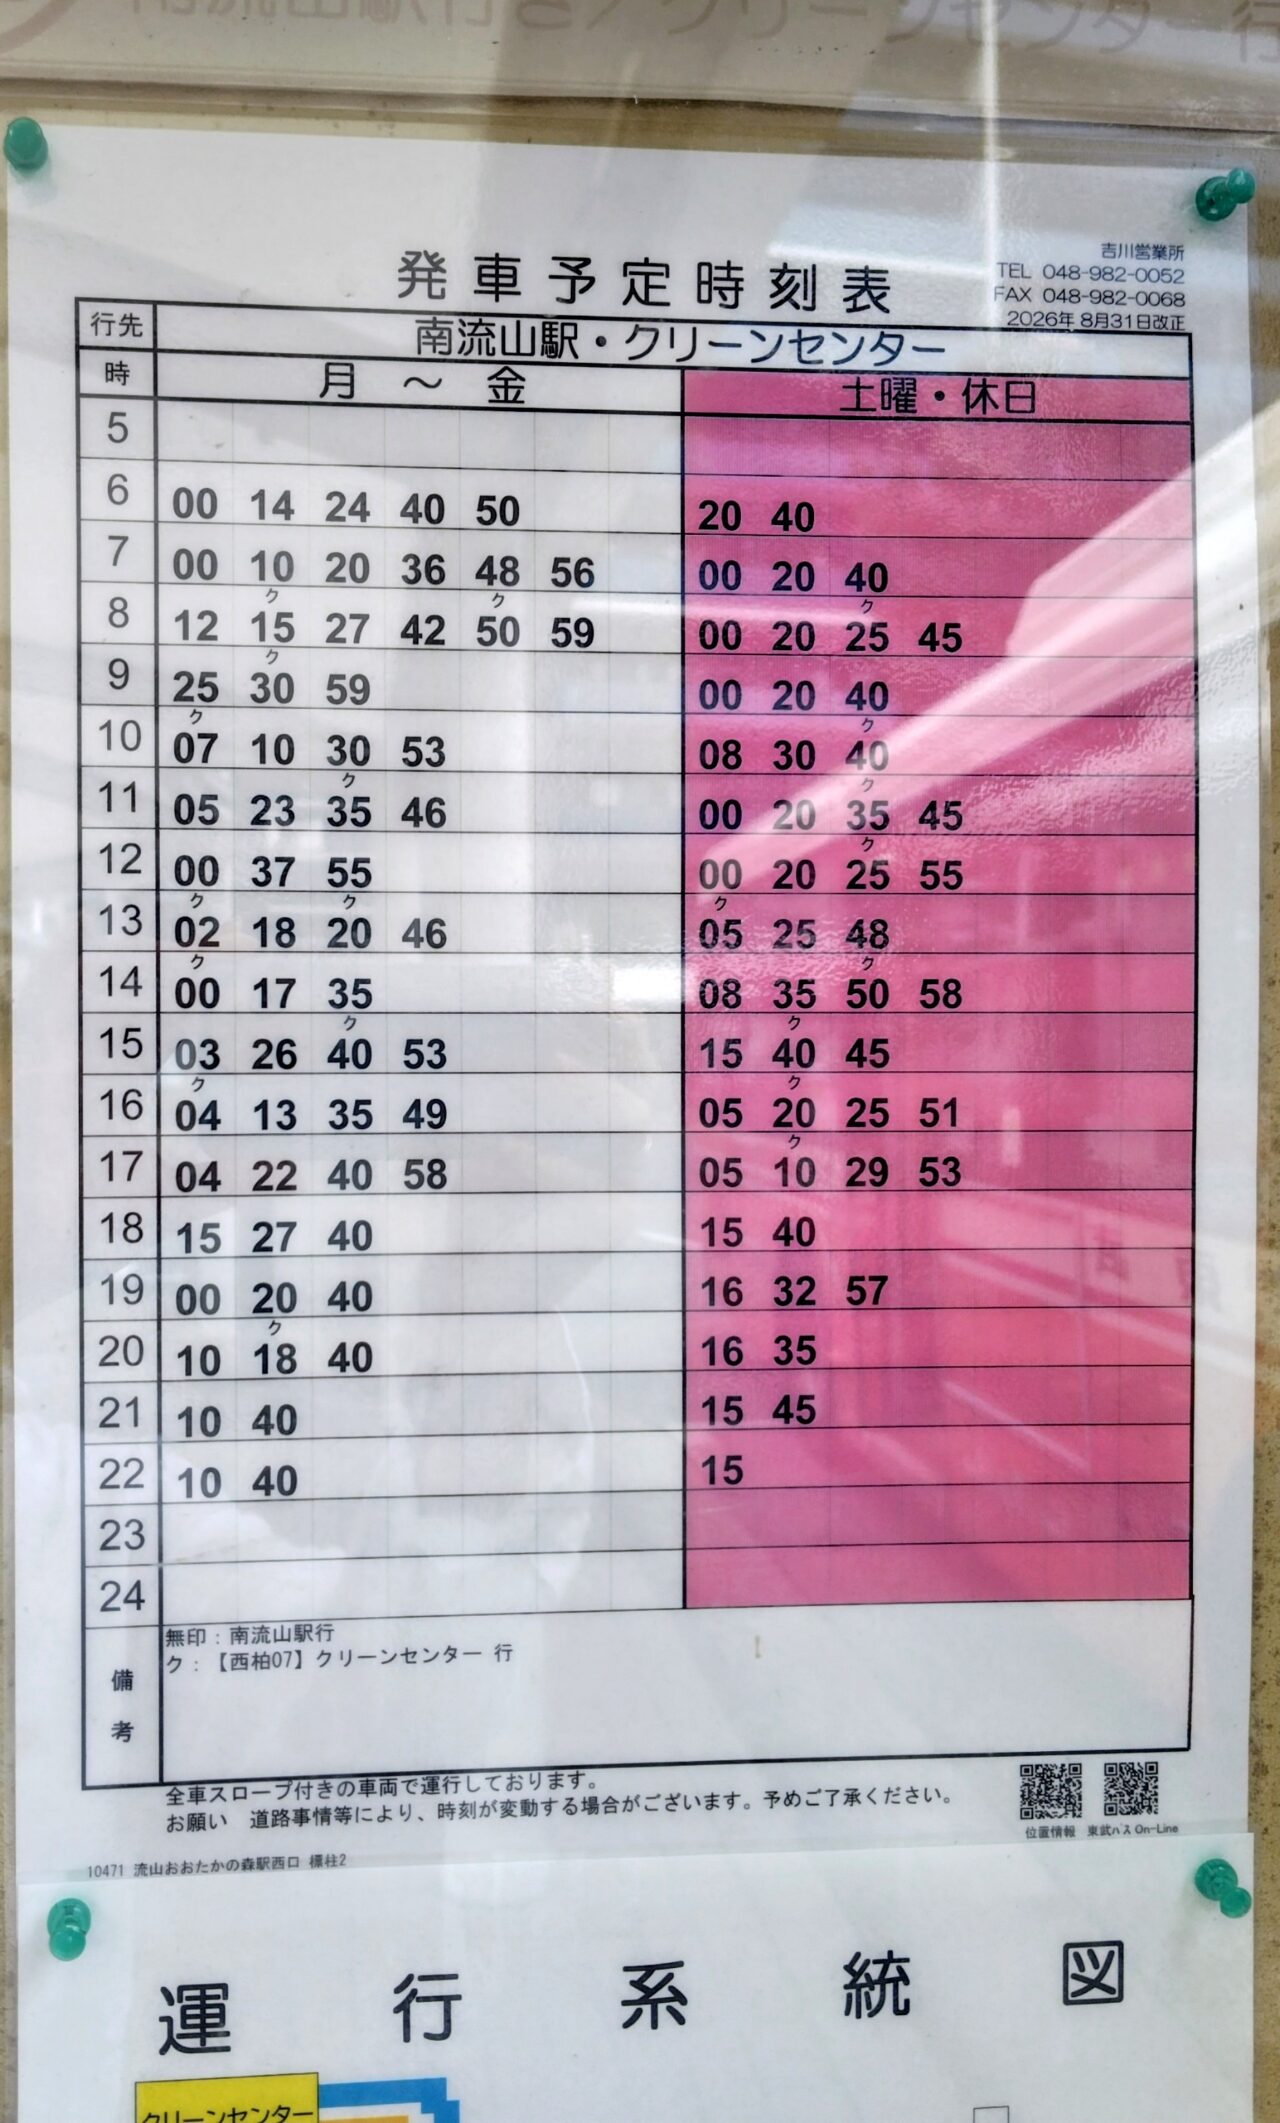 南流山駅行き/クリーンセンター行
吉川営業所
TEL 048-982-0052
FAX 048-982-0068
2026年 8月31日改正
発車予定時刻表
行先 南流山駅・クリーンセンター
時 月 ～ 金 土曜・休日
5
6 00 14 24 40 50 20 40
7 00 10 20 36 48 56 00 20 40
ク ク ク
8 12 15 27 42 50 59 00 20 25 45
ク
9 25 30 59 00 20 40
ク ク
10 07 10 30 53 08 30 40
ク ク
11 05 23 35 46 00 20 35 45
ク
12 00 37 55 00 20 25 55
ク ク ク
13 02 18 20 46 05 25 48
ク ク
14 00 17 35 08 35 50 58
ク ク
15 03 26 40 53 15 40 45
ク ク
16 04 13 35 49 05 20 25 51
ク
17 04 22 40 58 05 10 29 53
18 15 27 40 15 40
19 00 20 40 16 32 57
ク
20 10 18 40 16 35
21 10 40 15 45
22 10 40 15
23
24
備考
無印：南流山駅行
ク：【西柏07】クリーンセンター 行
全車スロープ付きの車両で運行しております。
お願い 道路事情等により、時刻が変動する場合がございます。予めご了承ください。
位置情報 東武バス On-Line
10471 流山おおたかの森駅西口 標柱2
運行系統図
クリーンセンター